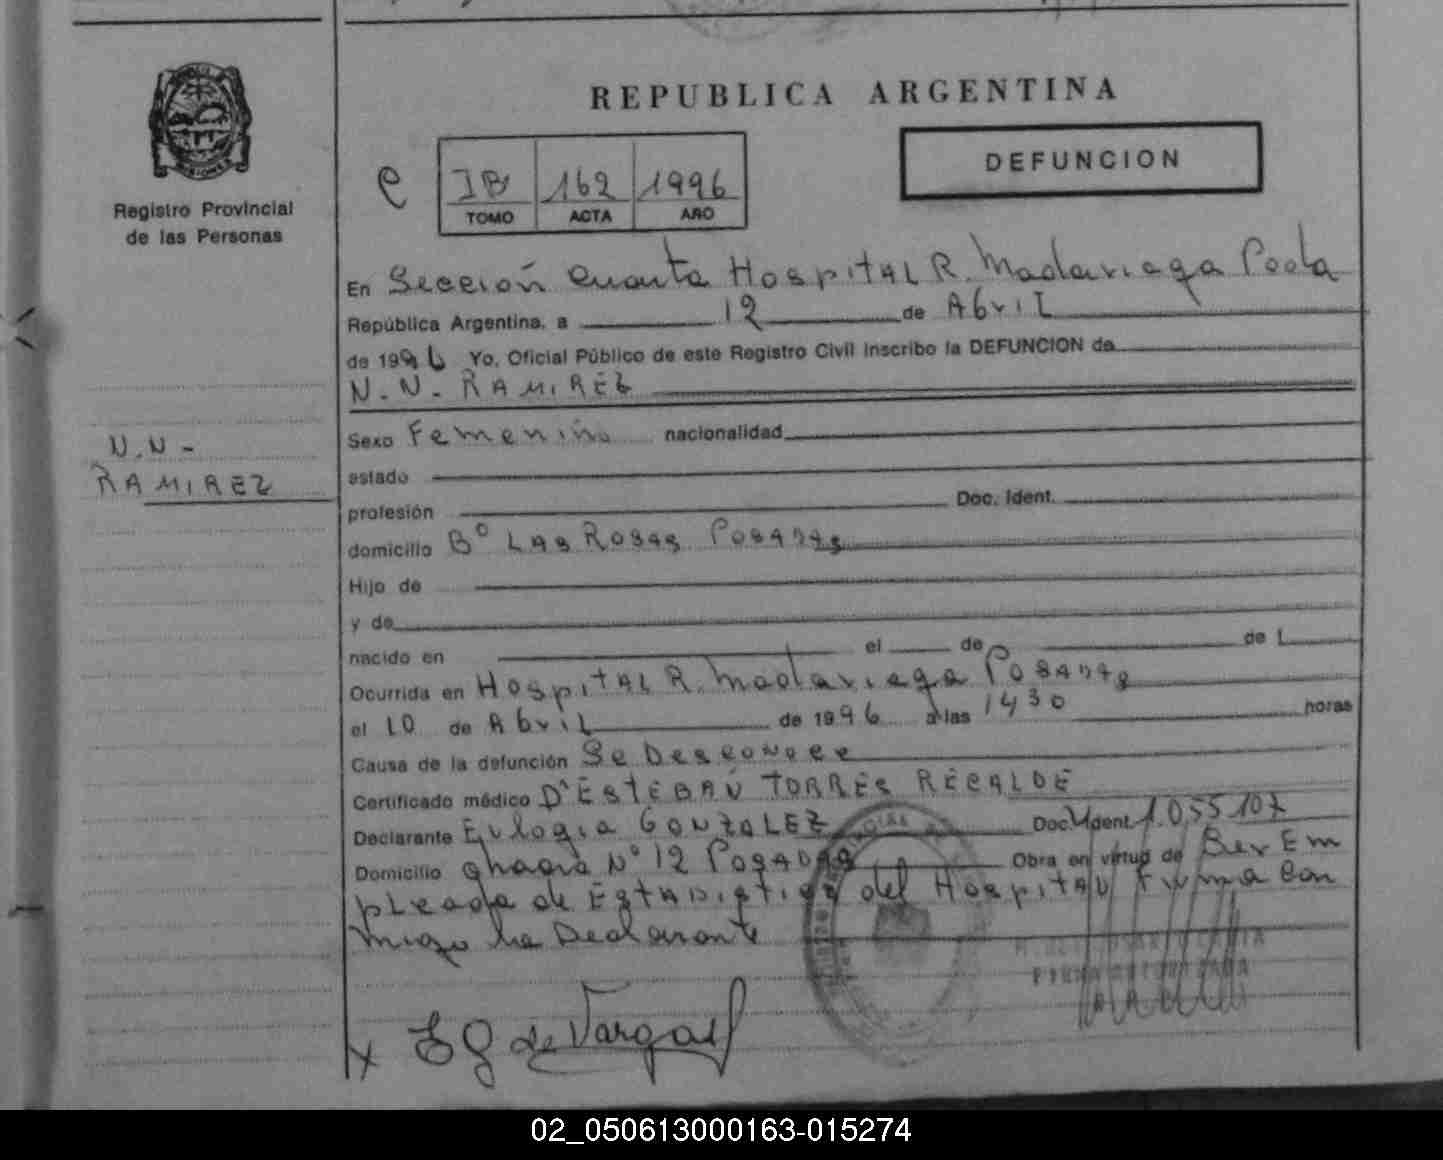 REPUBLICA ARGENTINA
DEFUNCION
MISIONES
Registro Provincial
de las Personas
e
IB 162 1996
TOMO ACTA AÑO
En Sección Cuarta Hospital R. Madariaga Pdas
República Argentina, a 12 de Abril
de 1996 Yo, Oficial Público de este Registro Civil inscribo la DEFUNCION de
N.N. RAMIREZ
N.N-
RAMIREZ
Sexo Femenino nacionalidad
estado
profesión Doc. Ident.
domicilio Bº LAS ROSAS POSADAS
Hijo de
y de
nacido en el de de 1
Ocurrida en HOSPITAL R. Madariaga POSADAS
el 10 de Abril de 1996 a las 1430 horas
Causa de la defunción Se Desconoce
Certificado médico Dº ESTEBAN TORRES RECALDE
Declarante Eulogia GONZALEZ Doc. Ident. 1.055.107
Domicilio Chacra Nº 12 POSADAS Obra en virtud de Ser Em
pleada de Estadistica del Hospital Firma Con
migo la Declarante
FIRMA AUTORIZADA
x EG de Vargas
02_050613000163-015274